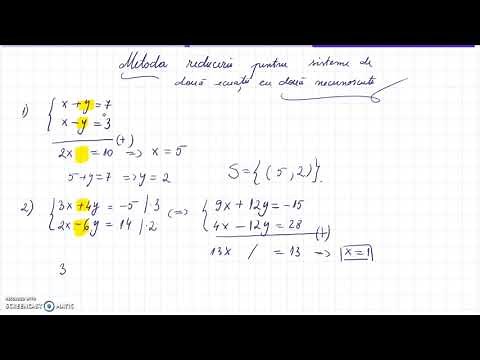 Metoda reducerii pentru sisteme de
două ecuații cu două necunoscute
1) { x + y = 7
x - y = 3
(+)
2x = 10 => x = 5
5 + y = 7 => y = 2
S = {(5, 2)}.
2) { 3x + 4y = -5 | ·3 (=> { 9x + 12y = -15
2x - 6y = 14 | ·2 4x - 12y = 28
(+)
13x / = 13 => x = 1
3
RECORDED WITH
SCREENCAST MATIC